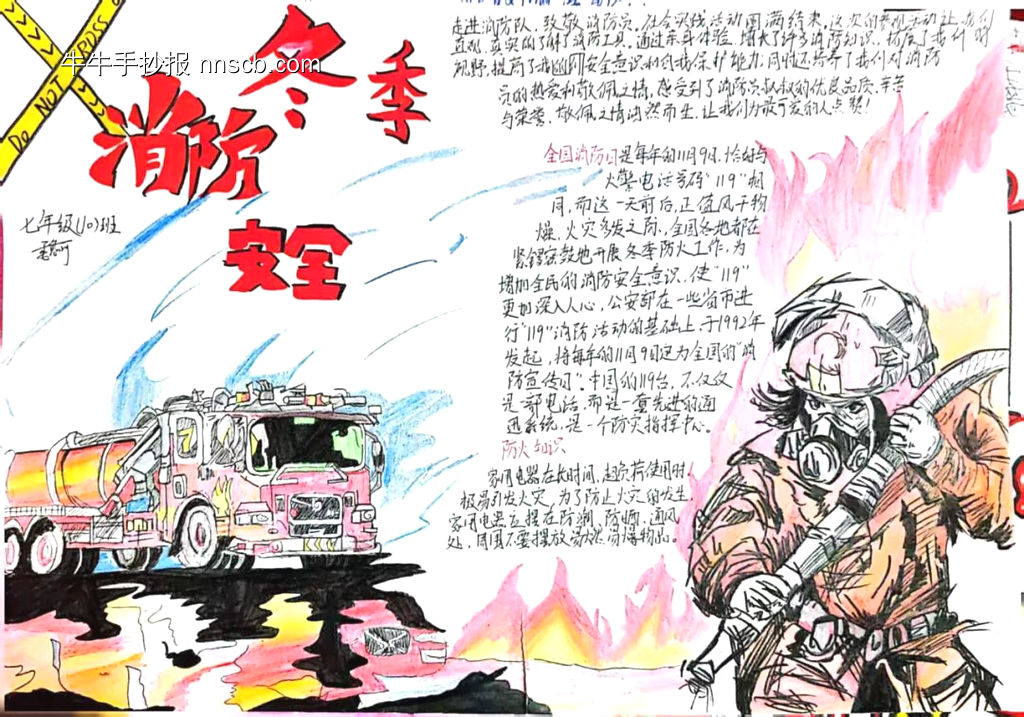 牛牛手抄报 nnscb.com
DO NOT CROSS
冬季
消防
安全
七年级(10)班
走进消防队,致敬消防员,社会实践活动圆满结束,这次的参观活动让我们
直观、真实的了解了消防工具。通过亲身体验,增长了许多消防知识,拓展了我们的
视野,提高了我们的安全意识和自我保护能力,同时还培养了我们对消防
员的热爱和敬佩之情,感受到了消防员叔叔的优良品质,辛苦
与荣誉,敬佩之情油然而生,让我们为最可爱的人点赞!
全国消防日是每年的11月9日,恰好与
火警电话号码"119"相
同,而这一天前后,正值风干物
燥,火灾多发之际,全国各地都在
紧锣密鼓地开展冬季防火工作,为
增加全民的消防安全意识,使"119"
更加深入人心,公安部在一些省市进
行"119"消防活动的基础上,于1992年
发起,将每年的11月9日定为全国的"消
防宣传日"。中国的119台,不仅仅
是一部电话,而是一套先进的通
迅系统,是一个防灾指挥中心。
防火知识
家用电器在长时间,超负荷使用时
极易引发火灾,为了防止火灾的发生,
家用电器应摆在防潮,防晒,通风
处,周围不要摆放易燃,易爆物品。